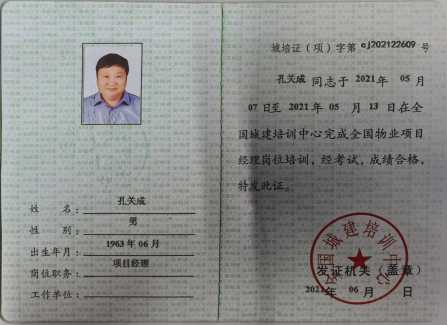 姓 名：孔关成
性 别：男
出生年月：1963 年 06 月
岗位职务：项目经理
工作单位：
城培证（项）字第 cj202122609 号
孔关成 同志于 2021年 05 月
07 日至 2021 年 05 月 13 日在全
国城建培训中心完成全国物业项目
经理岗位培训，经考试，成绩合格，
特发此证。
全国城建培训中心
发证机关（盖章）
2021年 06 月 日